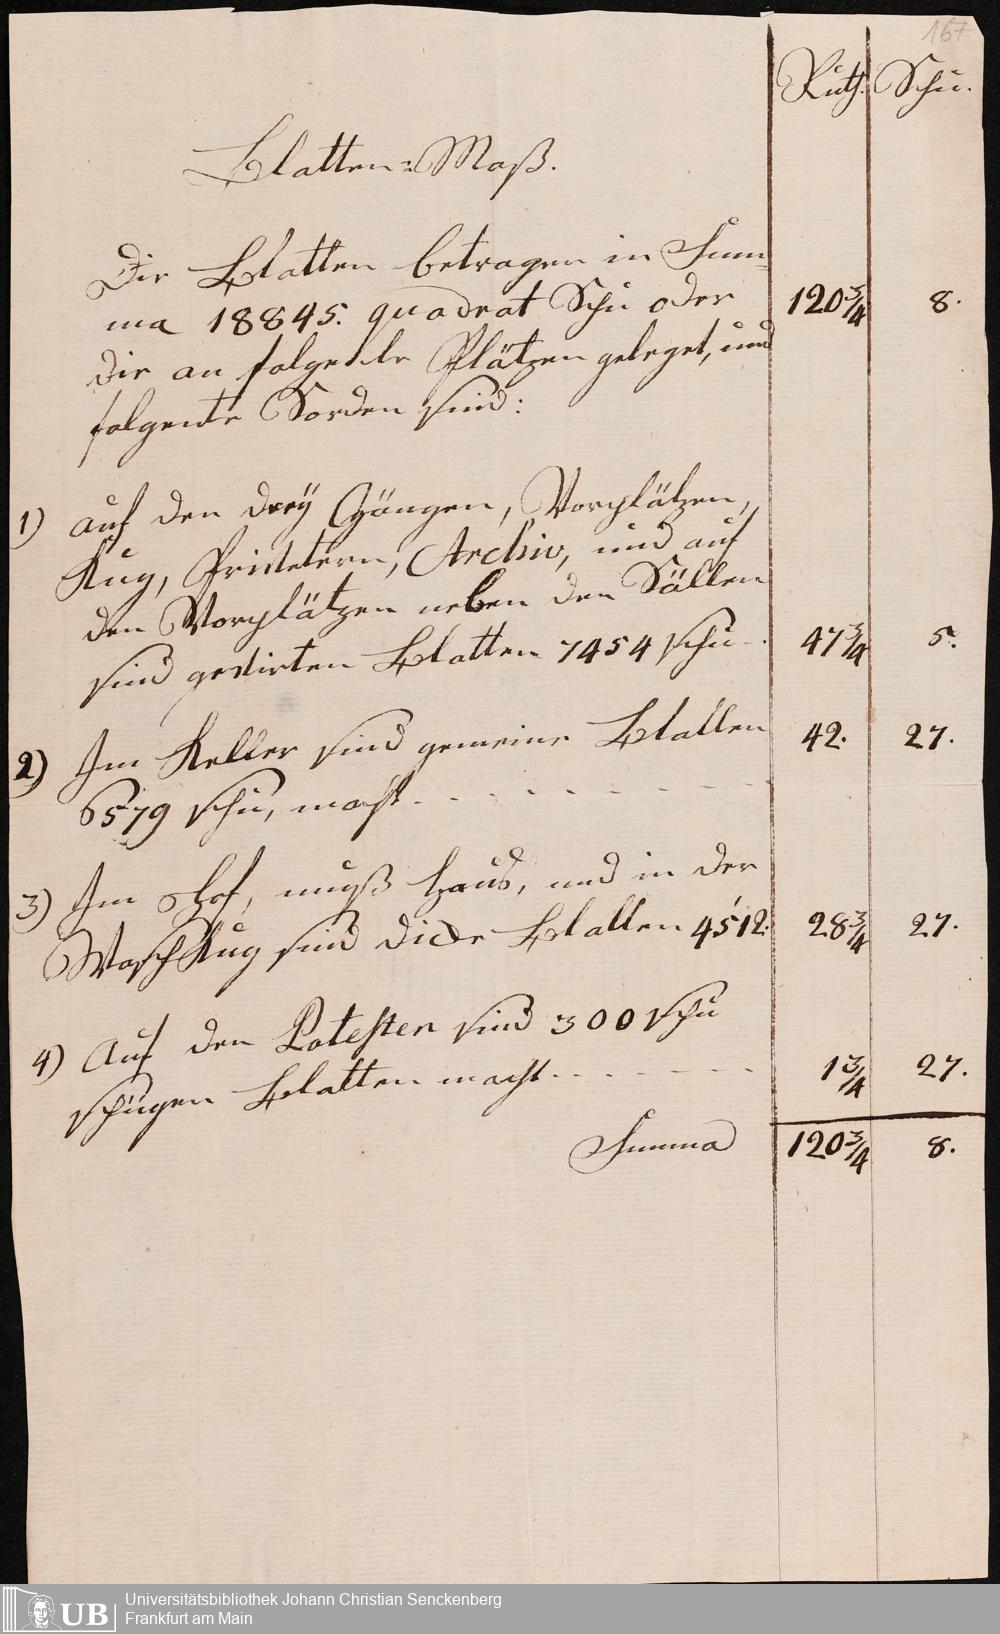 167
Ruth. Schu.
Blatten-Maß.
Die Blatten betragen in Sum-
ma 18845. quadrat Schu oder 120 3/4 8.
die an folgende Plätzen geleget, und
folgente Sorden sind:
1) auf den dreÿ Gängen, Vorplätzen,
Kug, Archiv, und auf
den Vorplätzen neben den Sällen
sind Blatten 7454 schu 47 3/4 5.
2) Im Keller sind gemeine Blatten 42. 27.
6579 schu, macht - - - - - - - -
3) Im Hof, haus, und in der
WaschKug sind dicke Blatten 4512. 28 3/4 27.
4) Auf den Potesten sind 300 schu
schügen Blatten macht - - - - - - 1 3/4 27.
Summa 120 3/4 8.
UB
Universitätsbibliothek Johann Christian Senckenberg
Frankfurt am Main